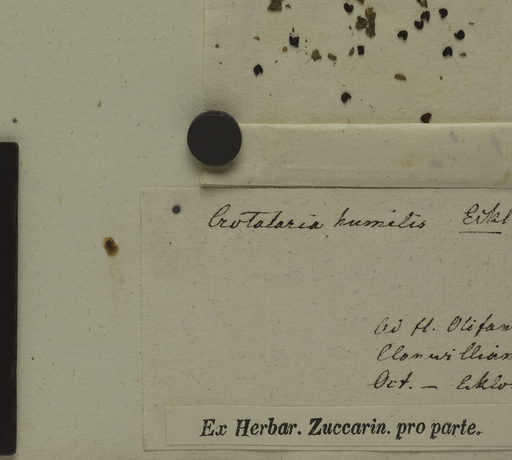 Crotalaria humilis Eckl
Ad fl. Olifan
Clanwillian
Oct. — Eklo
Ex Herbar. Zuccarin. pro parte.